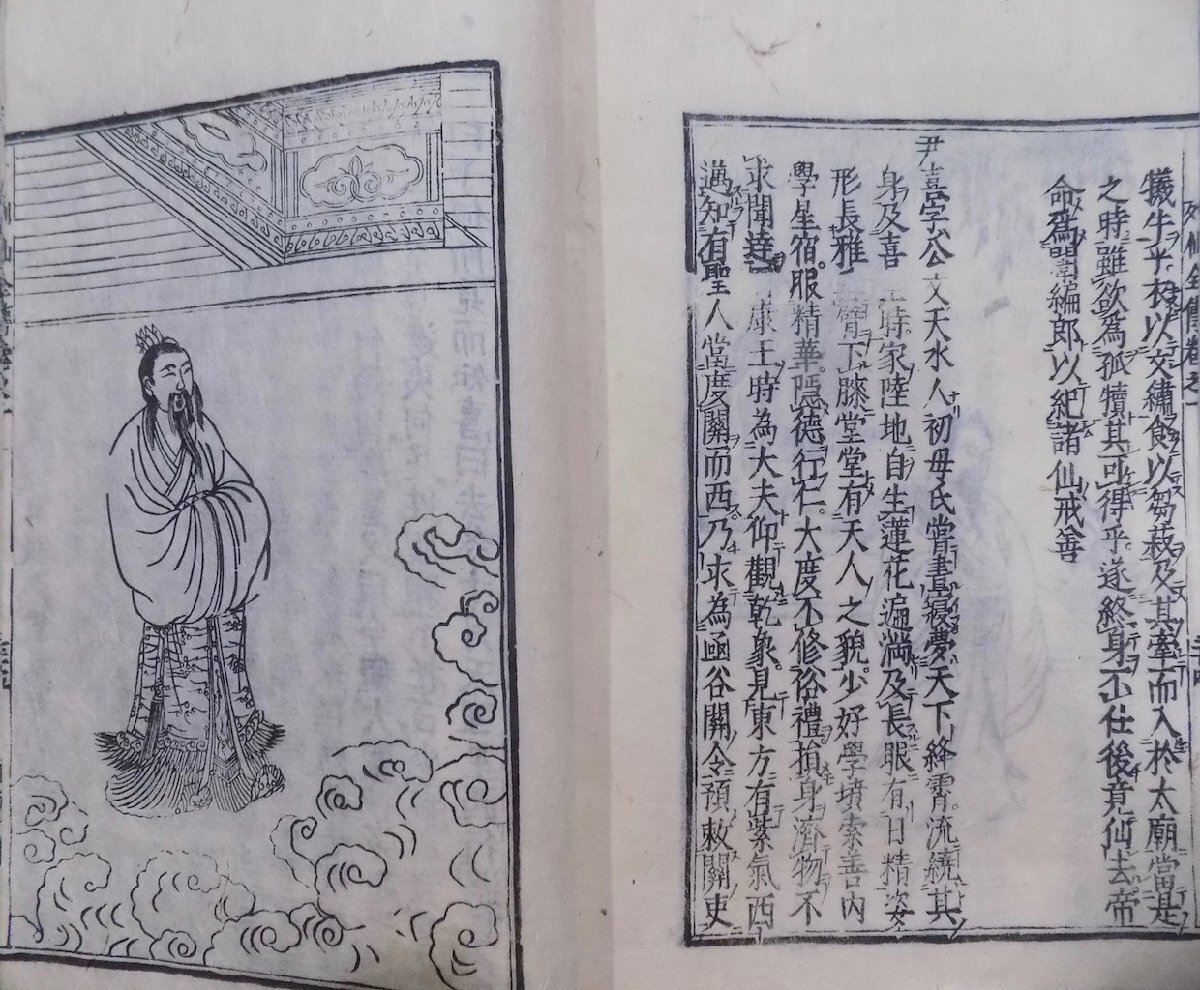 列仙全傳卷之一
犧牛乎衣以文繡食以芻菽及其牽而入於太廟當是
之時雖欲為孤犢其可得乎遂終身不仕後竟仙去帝
命為闈編郎以紀諸仙戒善
尹喜字公文天水人初母氏嘗晝寢夢天下絳霄流繞其
身及喜 時家陸地自生蓮花遍滿及長眼有日精姿
形長雅 臂下膝堂堂有天人之貌少好學墳索善內
學星宿服精華隱德行仁大度不修俗禮損身濟物不
求聞達 康王時為大夫仰觀乾象見東方有紫氣西
邁知有聖人當度關而西乃求為函谷關令預敕關吏